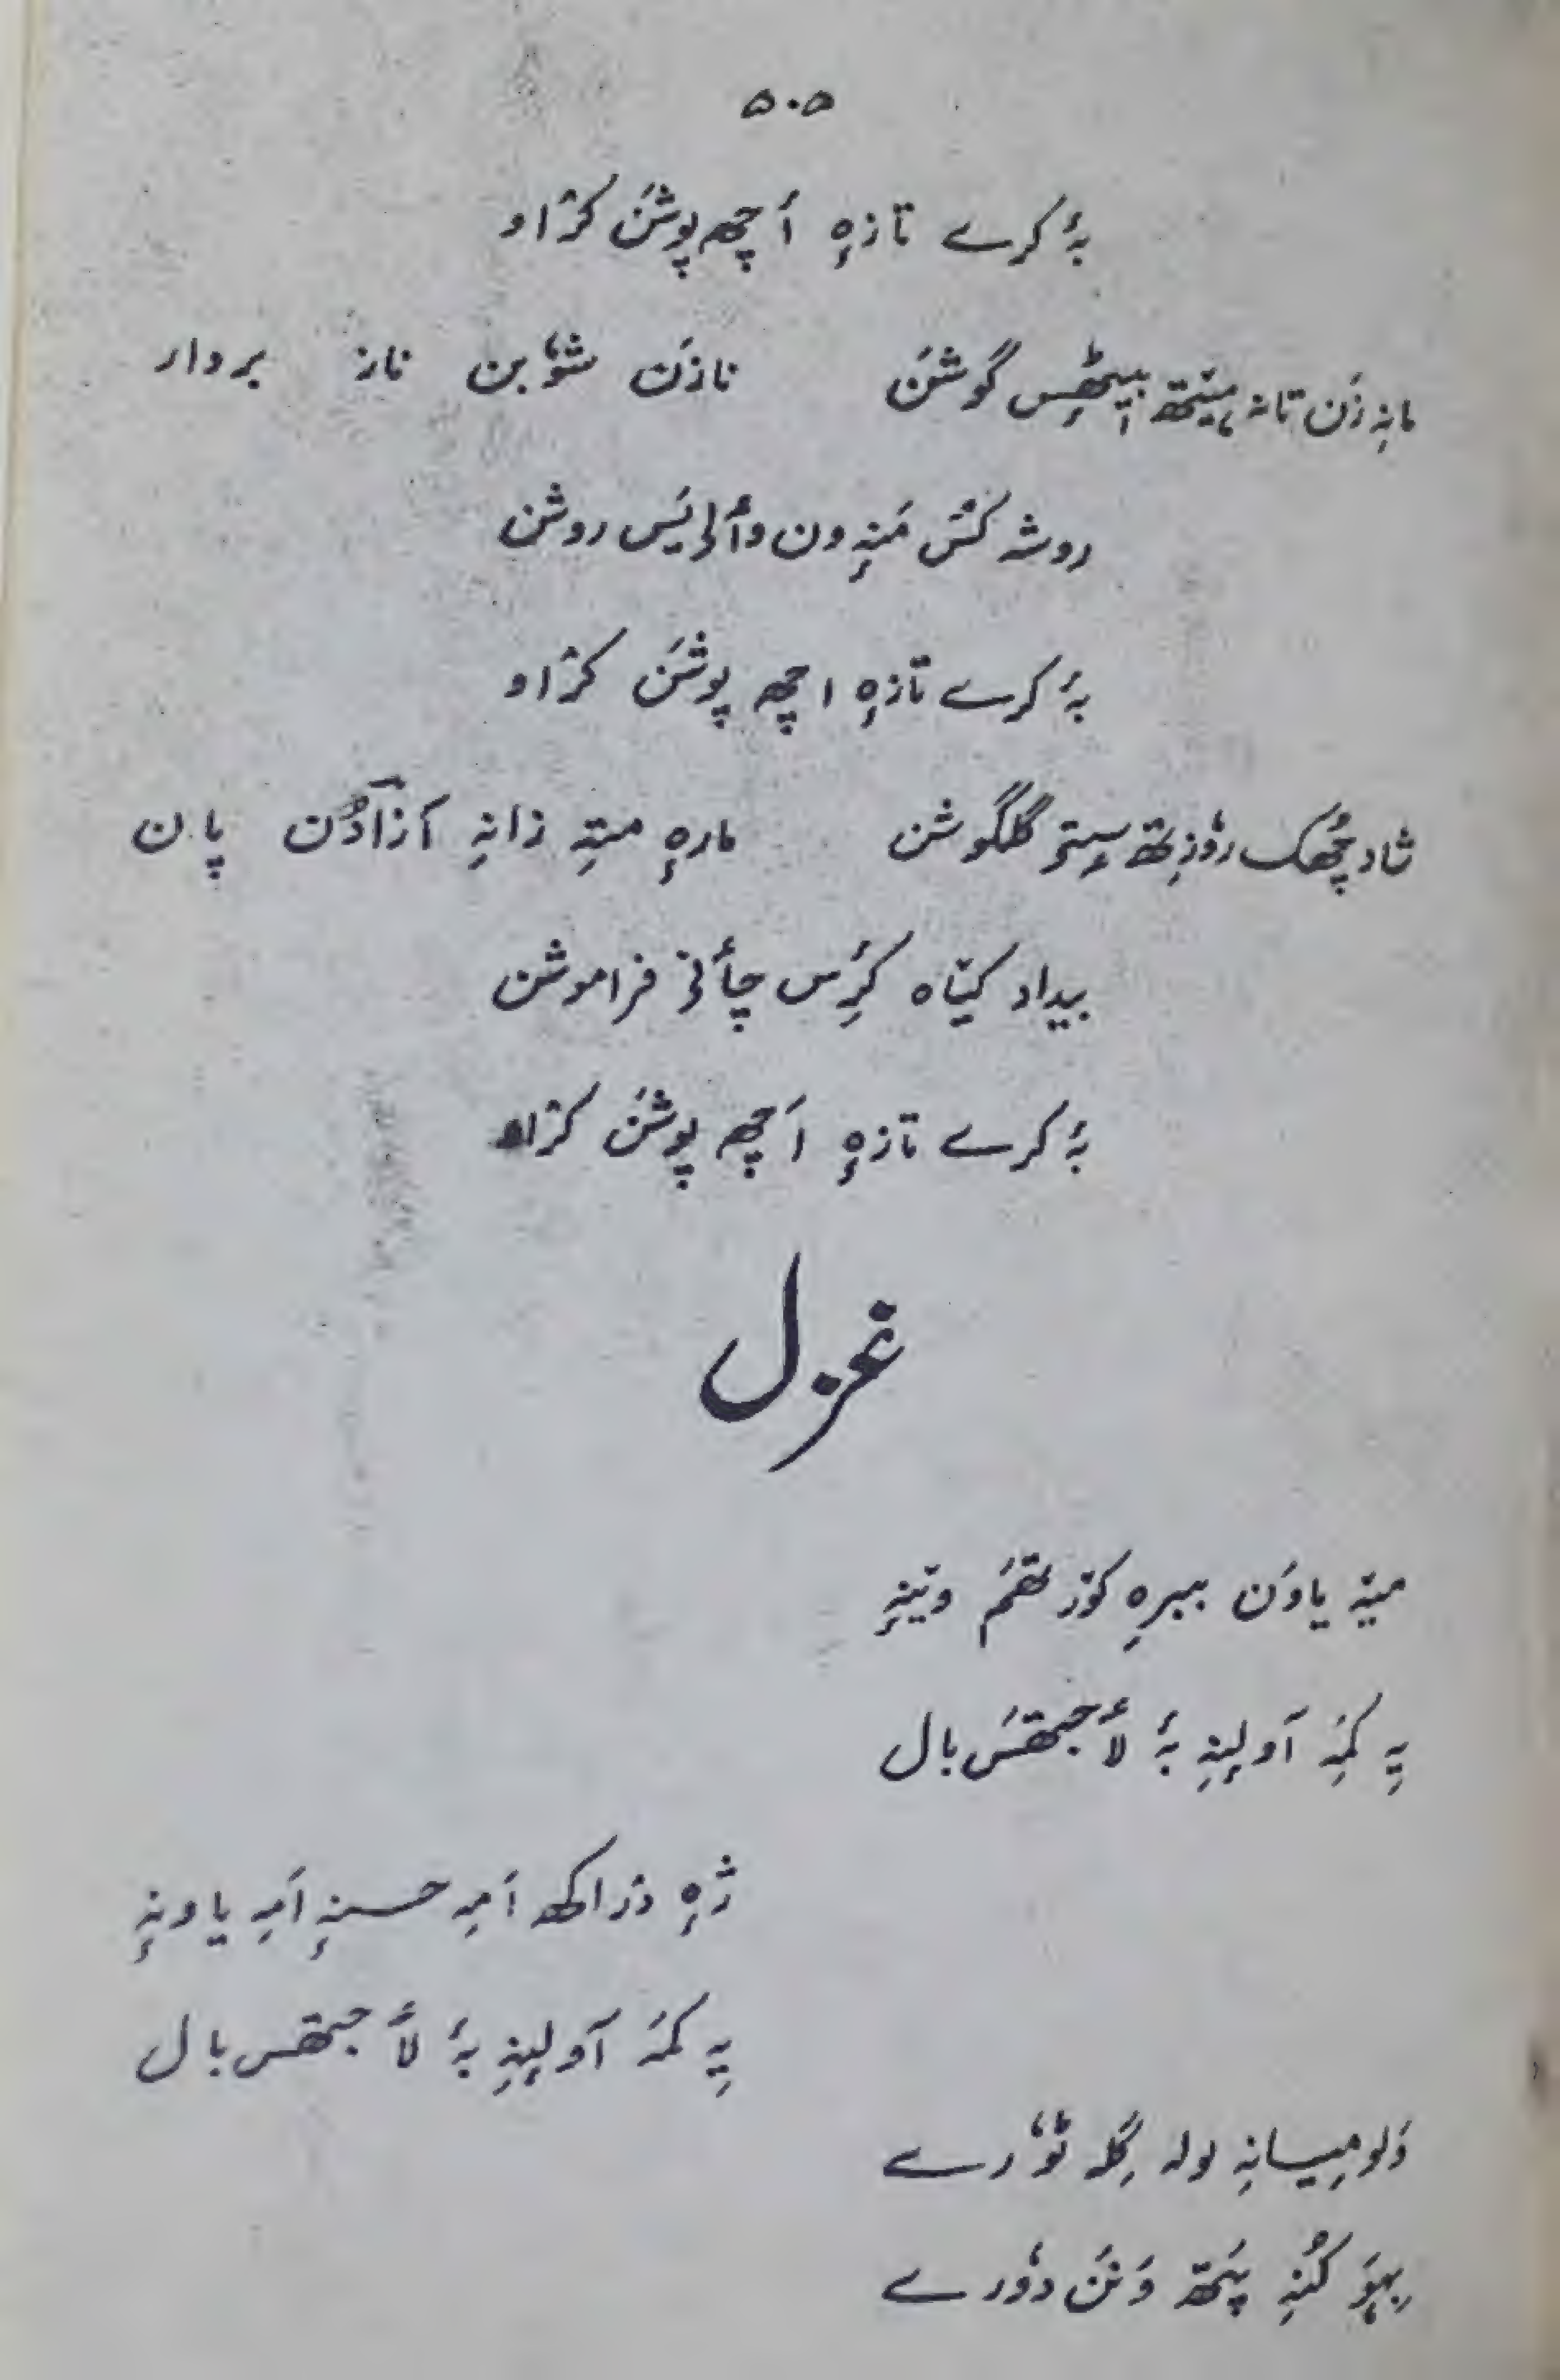 ۵۰۵
بہٕ کرے تازہٕ أچھ پوشَن کرٛاو
مانہِ زَن تانہ ہیٚتھ بیٖٹھِس گوشَن نازَن شوٗبن ناز بردار
روشہ کَنٛس مَنٛہِ ون وألۍ یَس روشن
بہٕ کرے تازہٕ اچھ پوشَن کرٛاو
شاد چُھک روٗزِتھ سیٖتۍ گلگوشن مارہٕ متہِ زانہِ آزادُن پان
بیداد کیٚاہ کٔرِس چأنۍ فراموشن
بہٕ کرے تازہٕ اَچھ پوشَن کرٛاو
غزل
میٚہ یاوَن ببرہِ کوٚرتھَم ویٚنہِ
یہِ کَمہِ آولِنہِ بہٕ لأجتھَس بال
ژہٕ دراکھ اَمہِ حسنہٕ اَمہِ یاونہٕ
یہِ کَمہ آولِنہِ بہٕ لأجتھس بال
وَلو میانہِ ولہ گِلہ ٹوٗرے
بہٕوَ کُنہِ پَتھ وَنَن دوٗرے